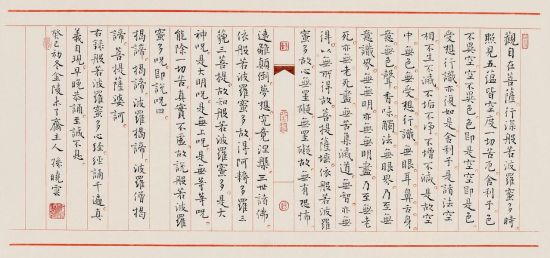 觀自在菩薩行深般若波羅蜜多時
照見五蘊皆空度一切苦厄舍利子色
不異空空不異色色即是空空即是色
受想行識亦復如是舍利子是諸法空
相不生不滅不垢不淨不增不減是故空
中無色無受想行識無眼耳鼻舌身
意無色聲香味觸法無眼界乃至無
意識界無無明亦無無明盡乃至無老
死亦無老死盡無苦集滅道無智亦無
得以無所得故菩提薩埵依般若波羅
蜜多故心無罣礙無罣礙故無有恐怖
遠離顛倒夢想究竟涅槃三世諸佛
依般若波羅蜜多故得阿耨多羅三
藐三菩提故知般若波羅蜜多是大
神咒是大明咒是無上咒是無等等咒
能除一切苦真實不虛故說般若波羅
蜜多咒即說咒曰
揭諦揭諦波羅揭諦波羅僧揭
諦菩提薩婆訶
右錄般若波羅蜜多心經經誦千遍真
義自現早晚恭誦至誠不怠
癸巳初冬金陵永了齋主人孫曉雲